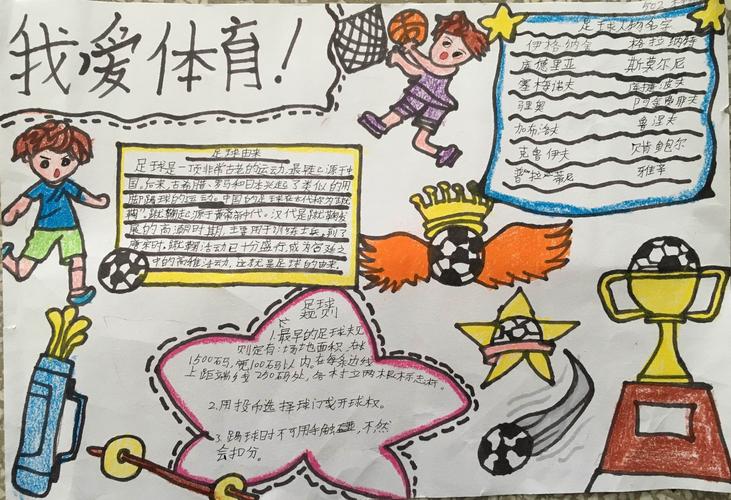 我爱体育！
502
足球人物名字
伊格纳仓 格拉纳特
库德里亚 斯莫尔尼
塞梅诺夫
里奥
加布洛夫 鲁涅夫
克鲁伊夫 贝肯鲍尔
普拉蒂尼 雅辛
足球由来
足球是一项非常古老的运动,最起源于中
国,后来,古希腊、罗马和日本兴起了类似的用
脚踢球的运动。中国的足球在古代称为蹴
鞠,蹴鞠起源于黄帝时代。汉代是蹴鞠发
展的高潮时期,主要用于训练士兵。到了
唐宋时,蹴鞠活动已十分盛行,成为宫廷之
中的高雅活动,这就是足球的由来。
足球
规则
1.最早的足球规
则定有:场地面积
1500码,宽100码以内。在每条边线
上距端线250码处,各树立两根标志杆。
2.用投币选择球门或开球权。
3.踢球时不可用手触碰,不然
会扣分。